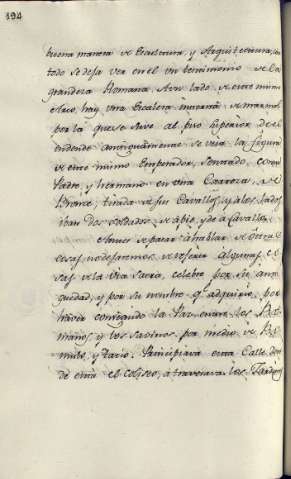 194
buena manera de Escultura, y Arquitectura, en
todo se deja ver en el un testimonio de la
grandeza Romana. A un lado de este mismo
Arco hay otra Escalera interior de marmol
por la que se sube al piso superior de el
donde antiguamente se veia la figura
de este mismo Emperador, sentado, con su
Padre, y hermano en una Carroza de
Bronce, tirada de seis Cavallos, y a los lados
iban dos soldados de a pie, y de a Cavallo.
Antes de pasar a hablar de otras
cosas no dejaremos de referir algunas co
sas de la Via Sacra, celebre por su anti
guedad, y por su nombre qe. adquirio, por
haver conseguido la Paz entre los Ro
manos y los Sabinos por medio de Ro
mulo, y Tacio. Principiava esta Calle des
de el Coliseo, atravesava los